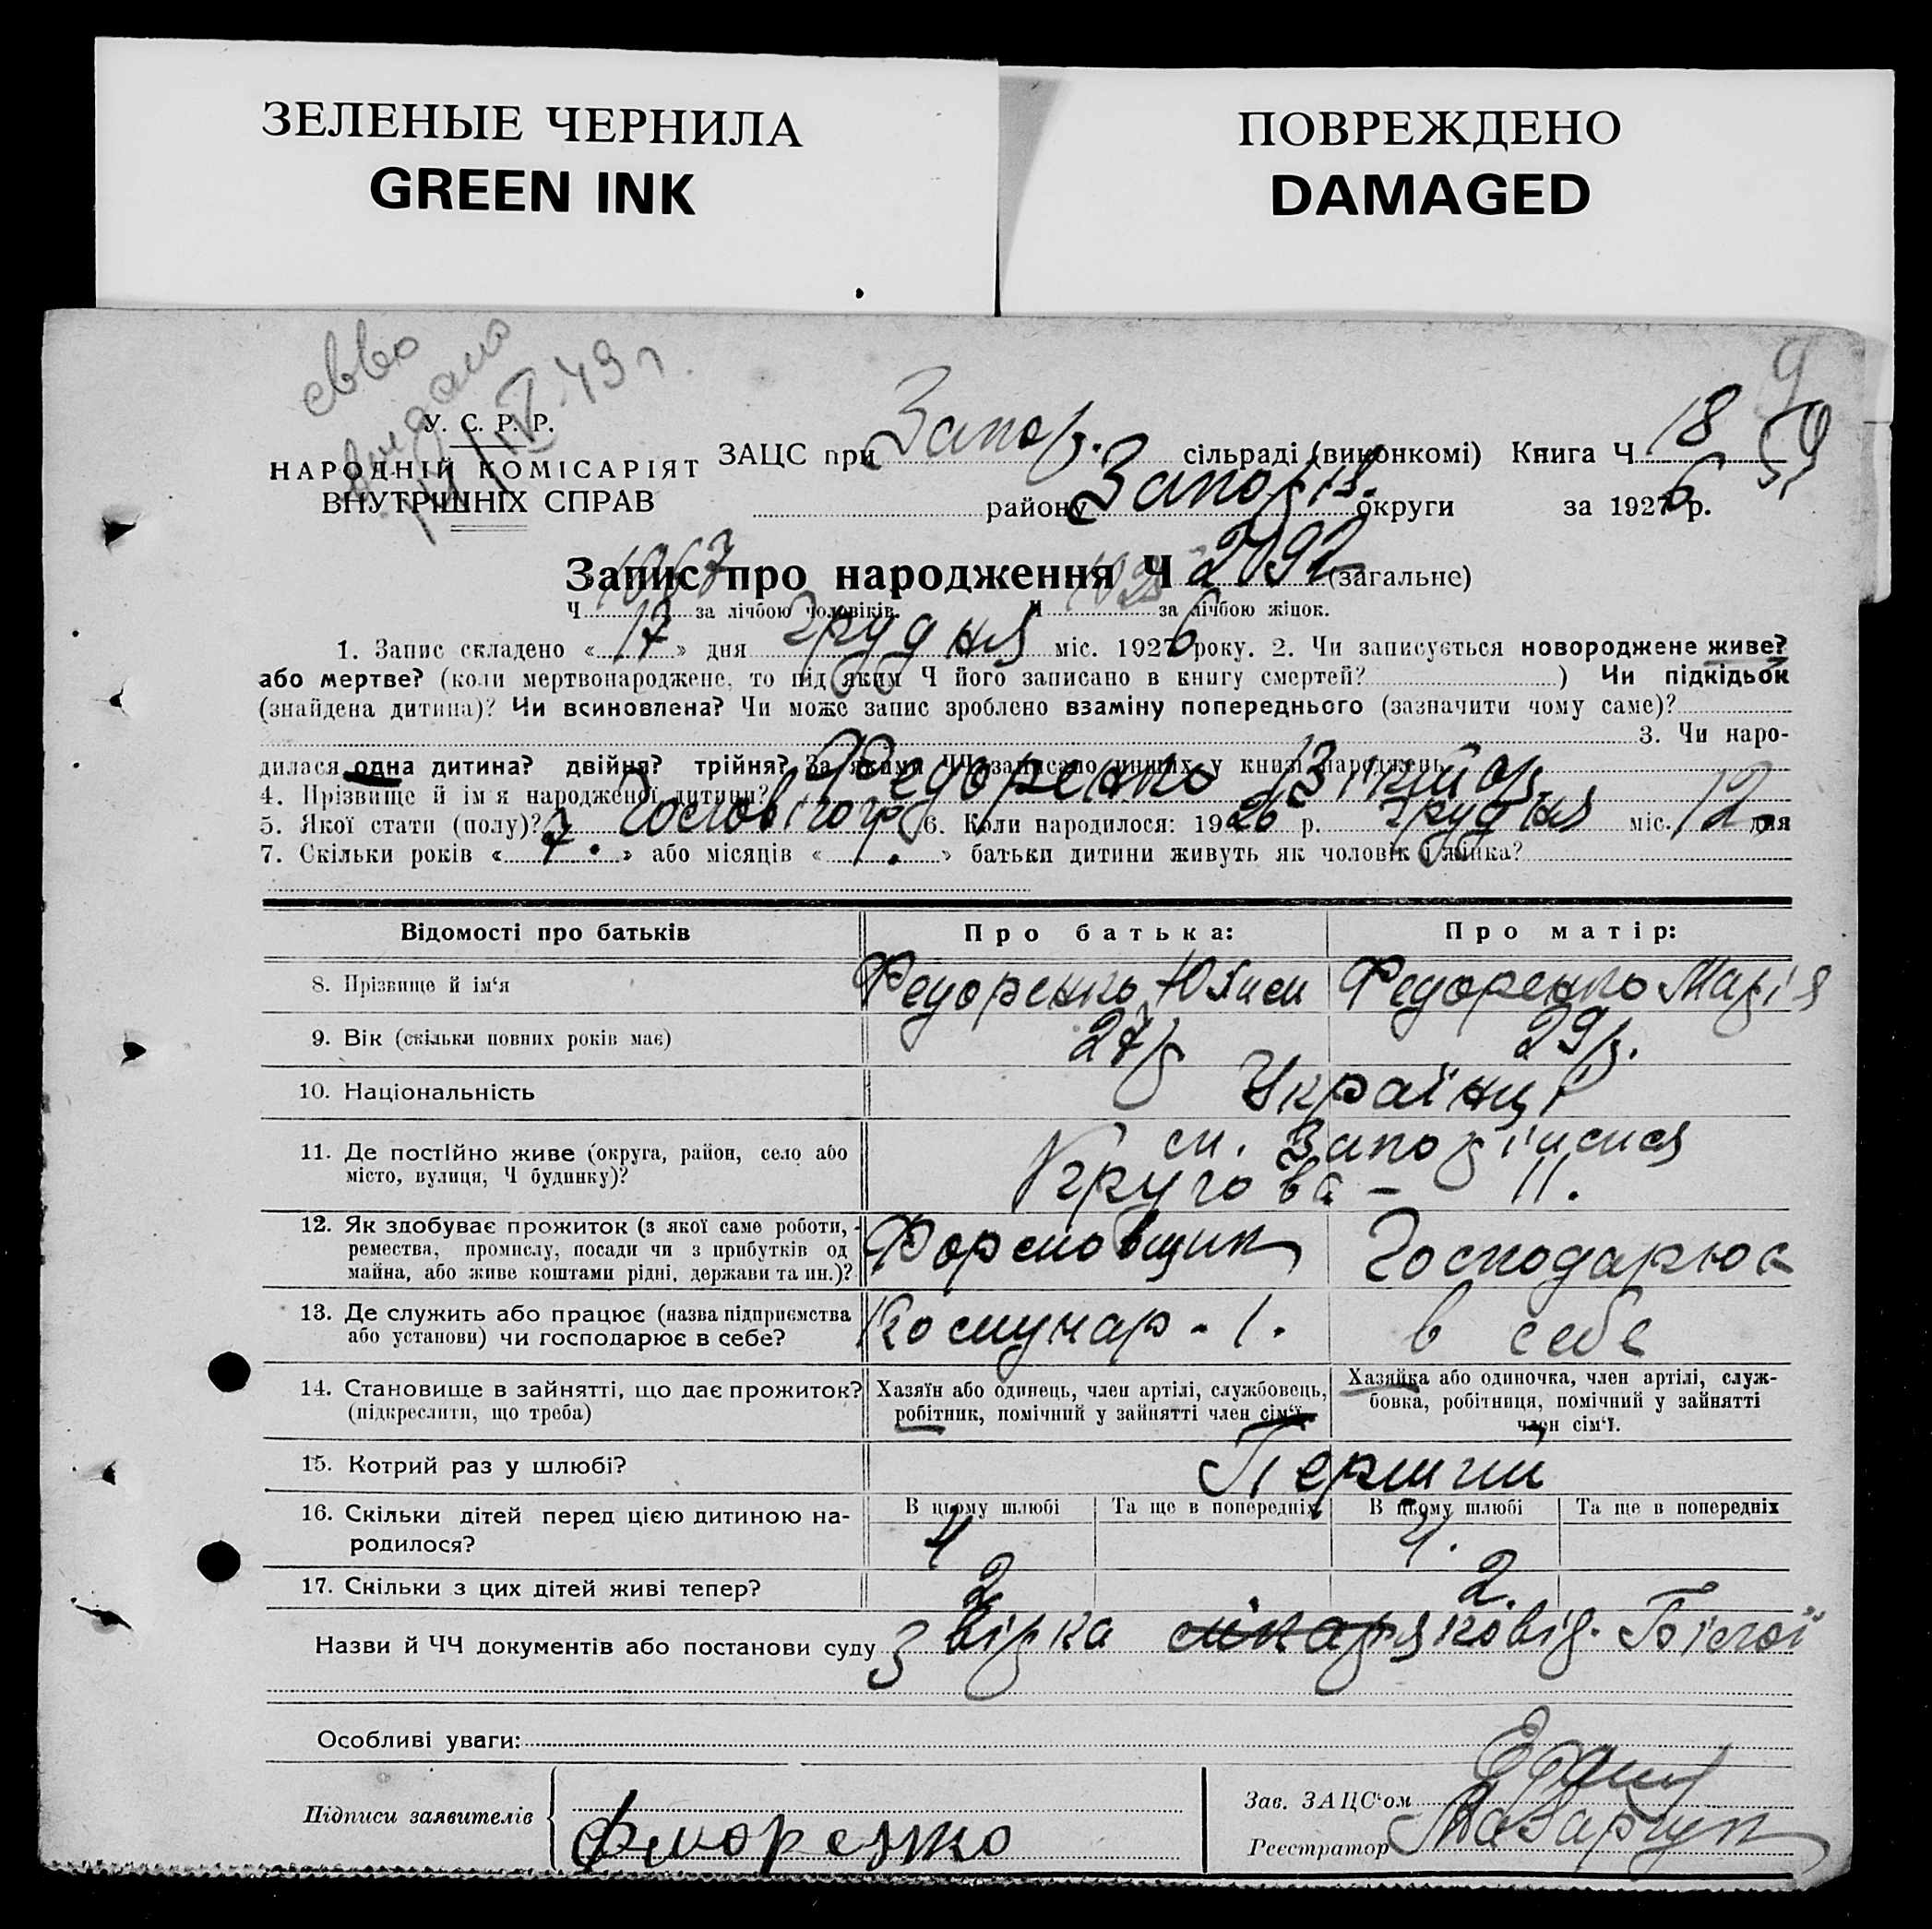 ЗЕЛЕНЫЕ ЧЕРНИЛА
GREEN INK
ПОВРЕЖДЕНО
DAMAGED
9
У. С. Р. Р.
НАРОДНІЙ КОМІСАРІЯТ
ВНУТРІШНІХ СПРАВ
ЗАЦС при Запор. сільраді (виконкомі) Книга Ч 18
району Запоріз. округи за 1926 р.
Запис про народження Ч 2092 (загальне)
Ч 1067 за лічбою чоловіків. Ч за лічбою жінок.
1. Запис складено « 17 » дня Грудня міс. 1926 року. 2. Чи записується новороджене живе?
або мертве? (коли мертвонароджене, то під яким Ч його записано в книгу смертей? ) Чи підкідьок
(знайдена дитина)? Чи всиновлена? Чи може запис зроблено взаміну попереднього (зазначити чому саме)?
3. Чи наро-
дилася одна дитина? двійня? трійня? За якими ЧЧ записано инших у книзі народжень
4. Прізвище й ім'я народженої дитини? Федоренко Віктор
5. Якої стати (полу)? Чоловічої 6. Коли народилося: 1926 р. Грудня міс. 12 дня
7. Скільки років « 7. » або місяців « » батьки дитини живуть як чоловік і жінка?
Відомості про батьків
Про батька:
Про матір:
8. Прізвище й ім'я
Федоренко
Федоренко Марія
9. Вік (скільки повних років має)
27 р
29 р.
10. Національність
Українці
11. Де постійно живе (округа, район, село або
місто, вулиця, Ч будинку)?
м. Запоріжжя
Кругова - 11.
12. Як здобуває прожиток (з якої саме роботи,
ремества, промислу, посади чи з прибутків од
майна, або живе коштами рідні, держави та ин.)?
Формовщик
Господарює
13. Де служить або працює (назва підприємства
або установи) чи господарює в себе?
Комунар - 1.
в себе
14. Становище в зайнятті, що дає прожиток?
(підкреслити, що треба)
Хазяїн або одинець, член артілі, службовець,
робітник, помічний у зайнятті член сім'ї.
Хазяйка або одиночка, член артілі, служ-
бовка, робітниця, помічний у зайнятті
член сім'ї.
15. Котрий раз у шлюбі?
Перший
16. Скільки дітей перед цією дитиною на-
родилося?
В цьому шлюбі
Та ще в попередніх
В цьому шлюбі
Та ще в попередніх
4
4.
17. Скільки з цих дітей живі тепер?
2
2.
Назви й ЧЧ документів або постанови суду
Особливі уваги:
Підписи заявителів
Зав. ЗАЦС'ом
Реєстратор